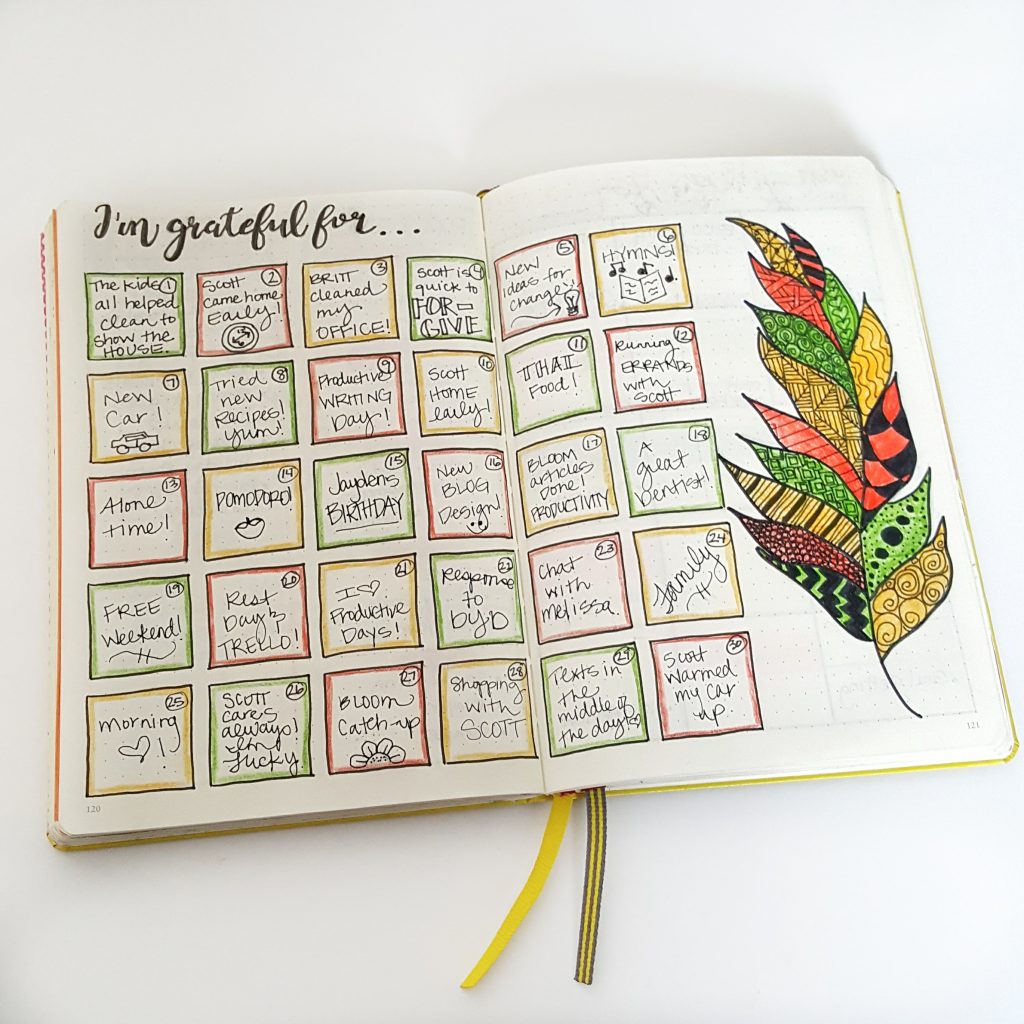 I'm grateful for...
1
The kids
all helped
clean to
show the
HOUSE.
2
Scott
came home
Early!
3
BRITT
cleaned
my
OFFICE!
4
Scott is
quick to
FOR-
GIVE
5
New
ideas for
change!
6
HYMNS!
7
New
Car!
8
Tried
new
Recipes!
Yum!
9
Productive
WRITING
Day!
10
Scott
HOME
early!
11
THAI
Food!
12
Running
ERRANDS
with
Scott
13
Alone
time!
14
POMODORO!
15
Jayden's
BIRTHDAY
16
New
BLOG
Design!
17
BLOOM
articles
Done!
PRODUCTIVITY
18
A
great
Dentist!
19
FREE
Weekend!
20
Rest
Day &
TRELLO!
21
I ♡
Productive
Days!
22
Response
to
23
Chat
with
melissa.
24
family
25
morning
♡!
26
SCOTT
cares
always!
I'm
Lucky.
27
BLOOM
Catch-up
28
Shopping
with
SCOTT
29
Texts in
the
middle of
the day! ♡
30
Scott
warmed
my car
up.
120
121